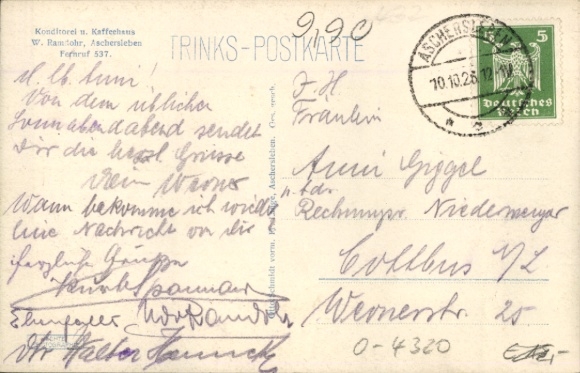 Konditorei u. Kaffeehaus
W. Ramdohr, Aschersleben
Fernruf 537.
TRINKS-POSTKARTE
9,90
ASCHERSLEBEN
10.10.26. 12
5
Deutsches
Reich
M. lb. Anni!
Von dem üblichen
Sonnabendabend sendet
Dir die herzl. Grüsse
Dein Werner
Wann bekomme ich wieder
eine Nachricht von dir
herzliche Grüsse
Kurt
Walter
Fräulein
Anni Giggel
Niedermeyer
Cottbus N/L
Wernerstr. 25
0-4320
vorm.
Aschersleben. Ges. gesch.